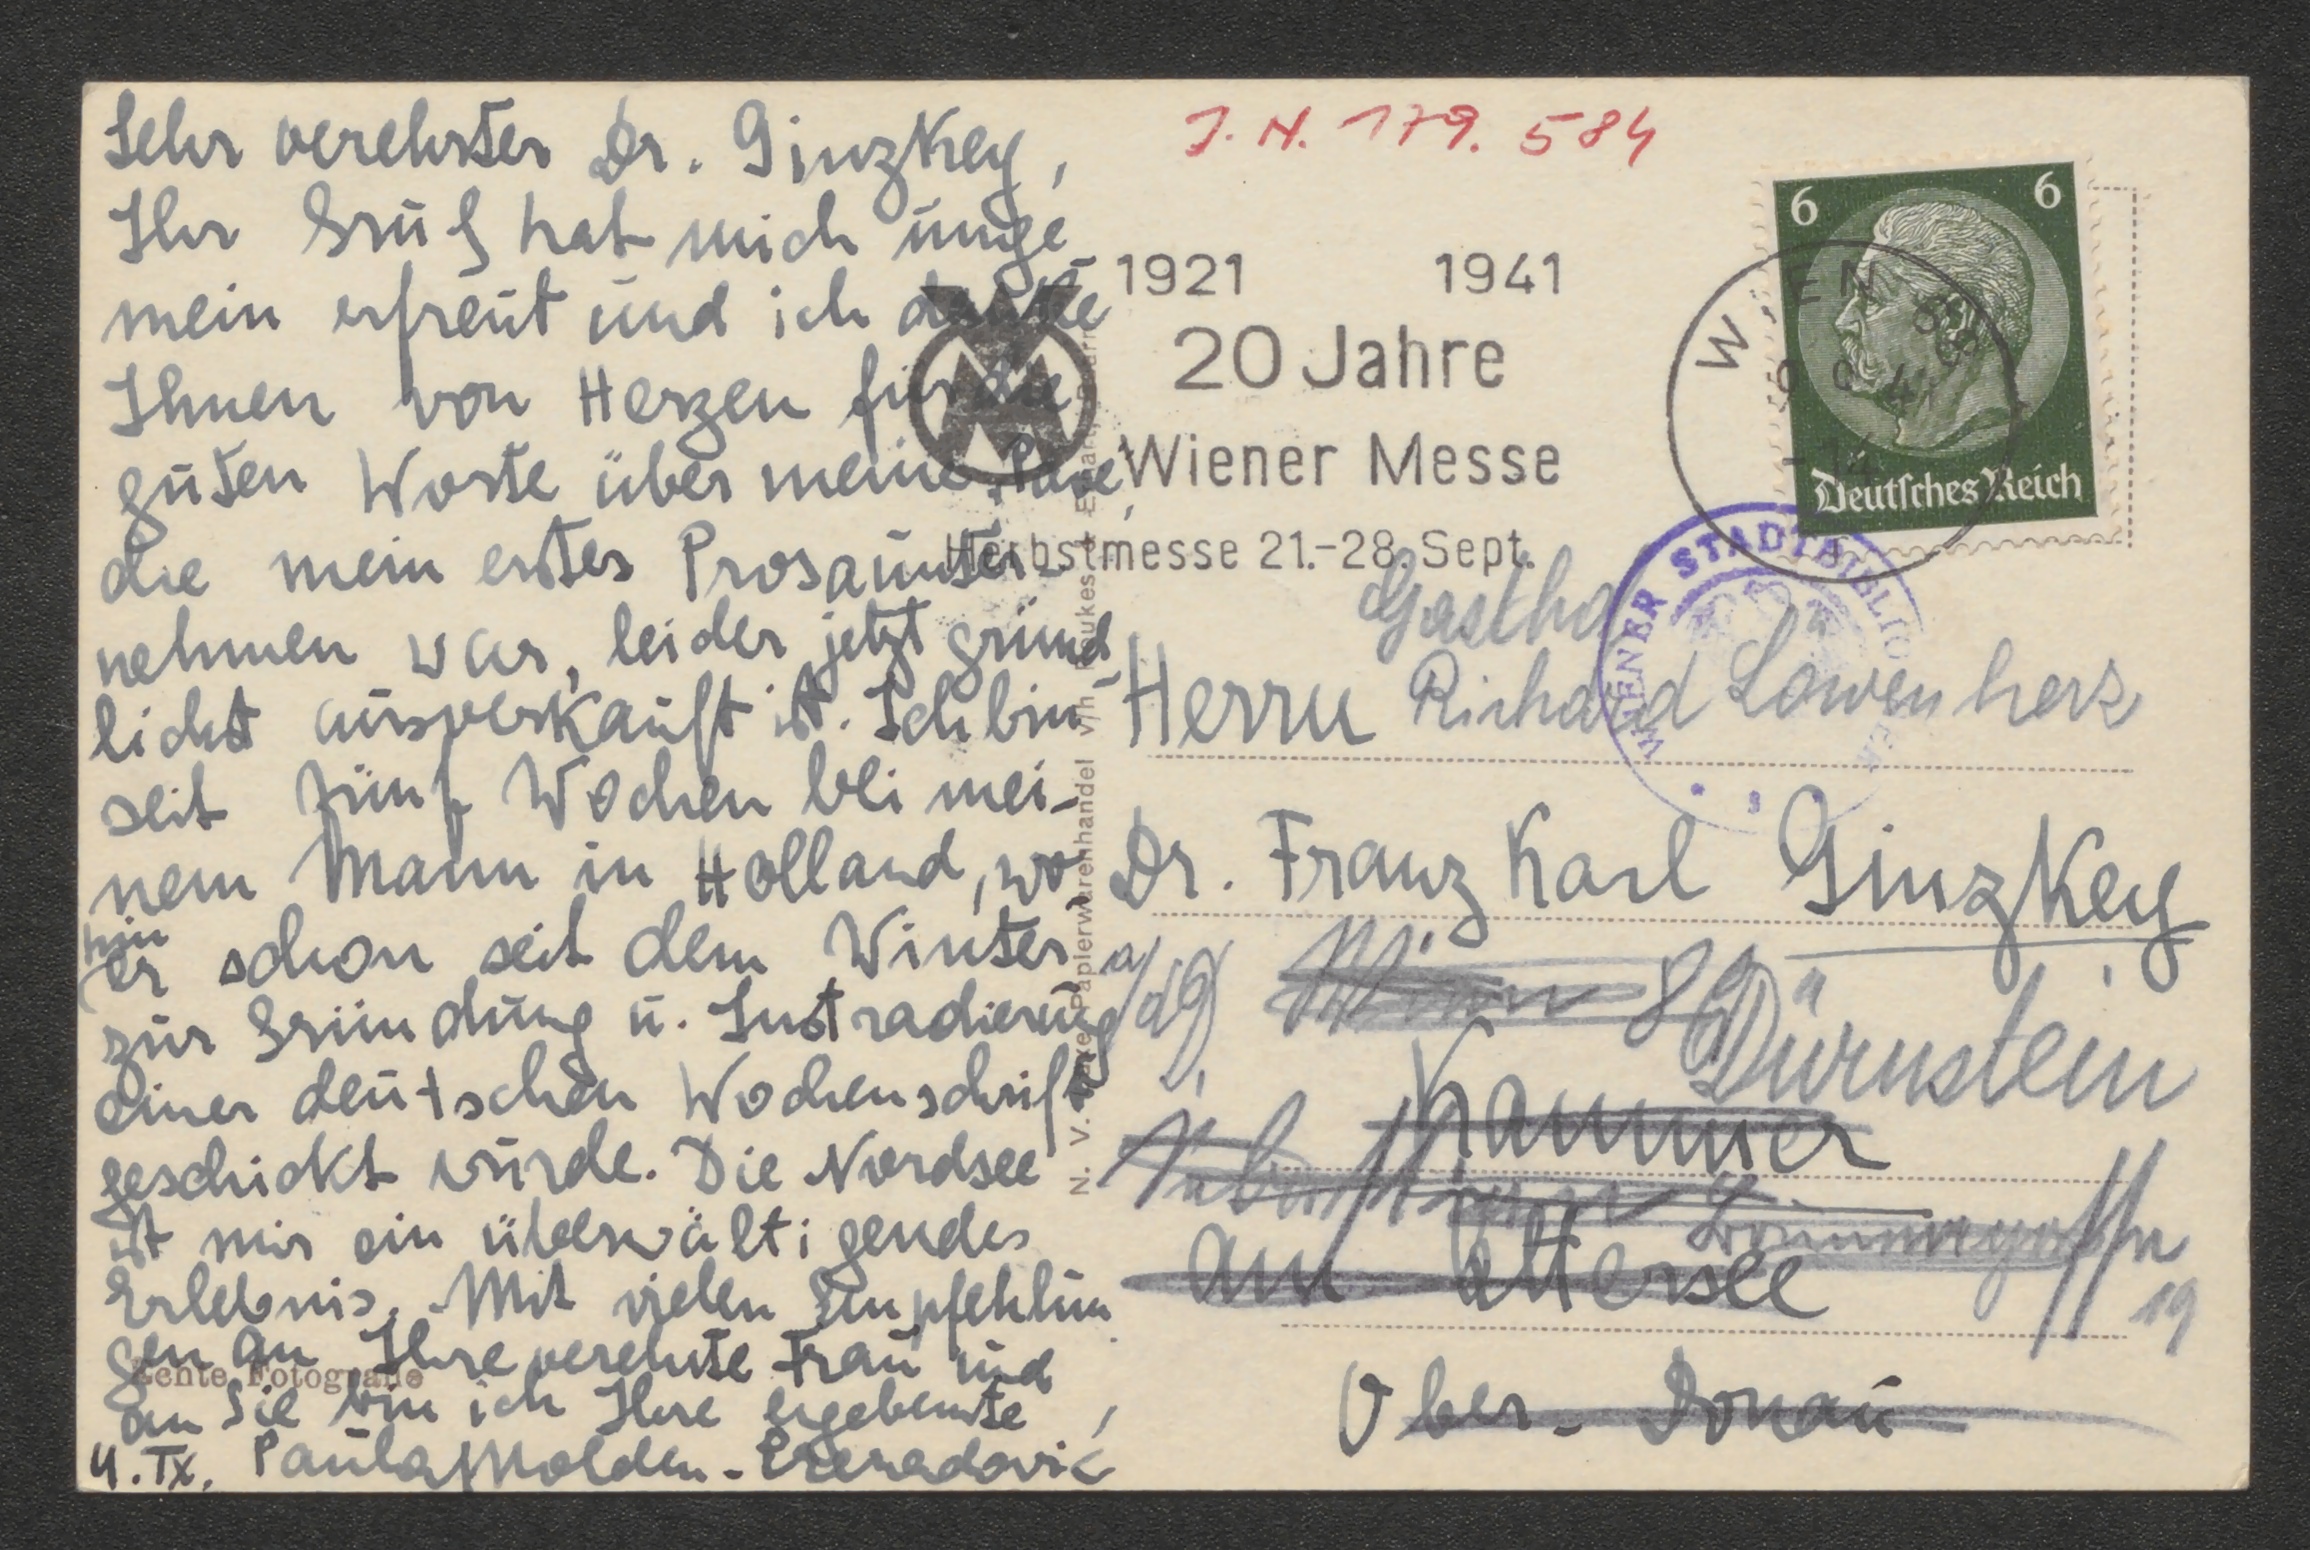 Sehr verehrter Dr. Ginzkey,
Ihr Gruß hat mich unge
mein erfreut und ich danke
Ihnen von Herzen für die
guten Worte über meine
die mein erstes Prosaunter-
nehmen war, leider jetzt gründ-
lichst ausverkauft ist. Ich bin
seit fünf Wochen bei mei-
nem Mann in Holland, wo
hin
er schon seit dem Winter
zur Gründung u. Instradierung
einer deutschen Wochenschrift
geschickt wurde. Die Nordsee
ist mir ein überwältigendes
Erlebnis. Mit vielen Empfehlun
gen an Ihre verehrte Frau und
an Sie bin ich Ihre ergebenste,
4. IX. Paula Molden-Preradović
Echte Fotografie
J.N. 179.584
1921 1941
20 Jahre
Wiener Messe
Herbstmesse 21.-28. Sept.
WIEN
6 6
Deutsches Reich
WIENER STADTBIBLIOTHEK
Gasthof
Richard Löwenherz
Herrn
Dr. Franz Karl Ginzkey
a/d D.
Wien 89
Dürnstein
Kammer
am Attersee
19
Ober-Donau
N. V.
Papierwarenhandel v/h